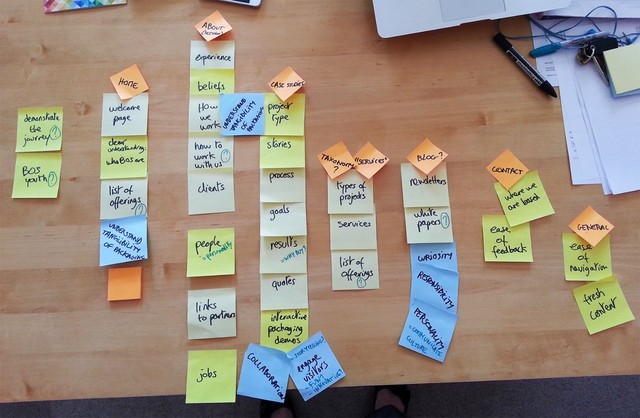 demonstrate
the
journey?
BOS
youth?
HOME
welcome
page
clear
understanding
who BOS are
list of
offerings?
UNDERSTAND
TANGIBILITY
OF
PACKAGING
ABOUT
experience
beliefs
How
we
work
UNDERSTAND
TANGIBILITY
OF
how to
work with
us?
clients
people
links
to partners
jobs
CASE STUDIES
project
type
stories
process
goals
results
quotes
interactive
packaging
demos
COLLABORATION
engage
visitors
TAXONOMY
?
"SERVICES"
types of
projects
services
list of
offerings?
BLOG?
newsletters
white
papers?
CURIOSITY
RESPONSIBILITY
PERSONALITY
CULTURE
CONTACT
where we
are based
ease
of
feedback
GENERAL
ease of
navigation
fresh
content